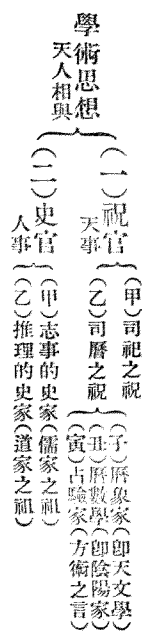 學術思想
天人相與
（一）祝官
天事
（甲）司祀之祝
（乙）司曆之祝
（子）曆象家（卽天文學）
（丑）曆數學（卽陰陽家）
（寅）占驗家（方術之言）
（二）史官
人事
（甲）志事的史家（儒家之祖）
（乙）推理的史家（道家之祖）